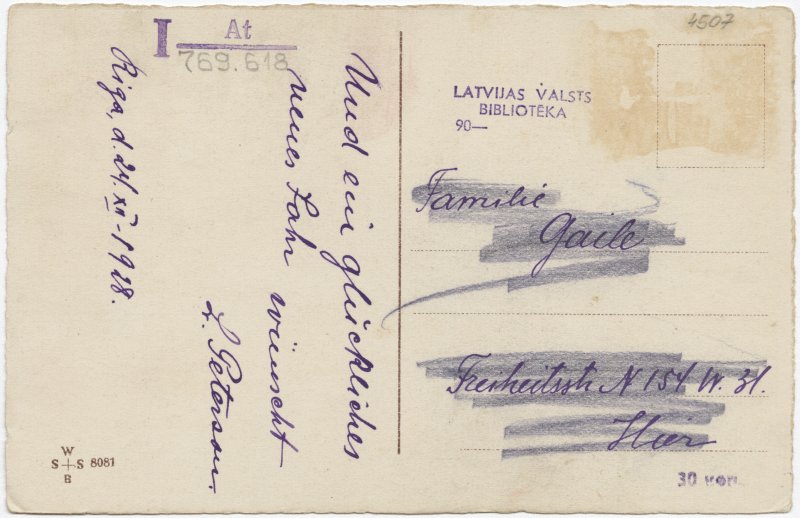 I At
769.618
4507
LATVIJAS VALSTS
BIBLIOTĒKA
90—
Und ein glückliches
neues Jahr wünscht
L. Peterson.
Riga, d. 24. XII-1928.
Familie
Gaile
Freiheitsstr N 154 W. 31.
Hier
W
S S 8081
B
30 von